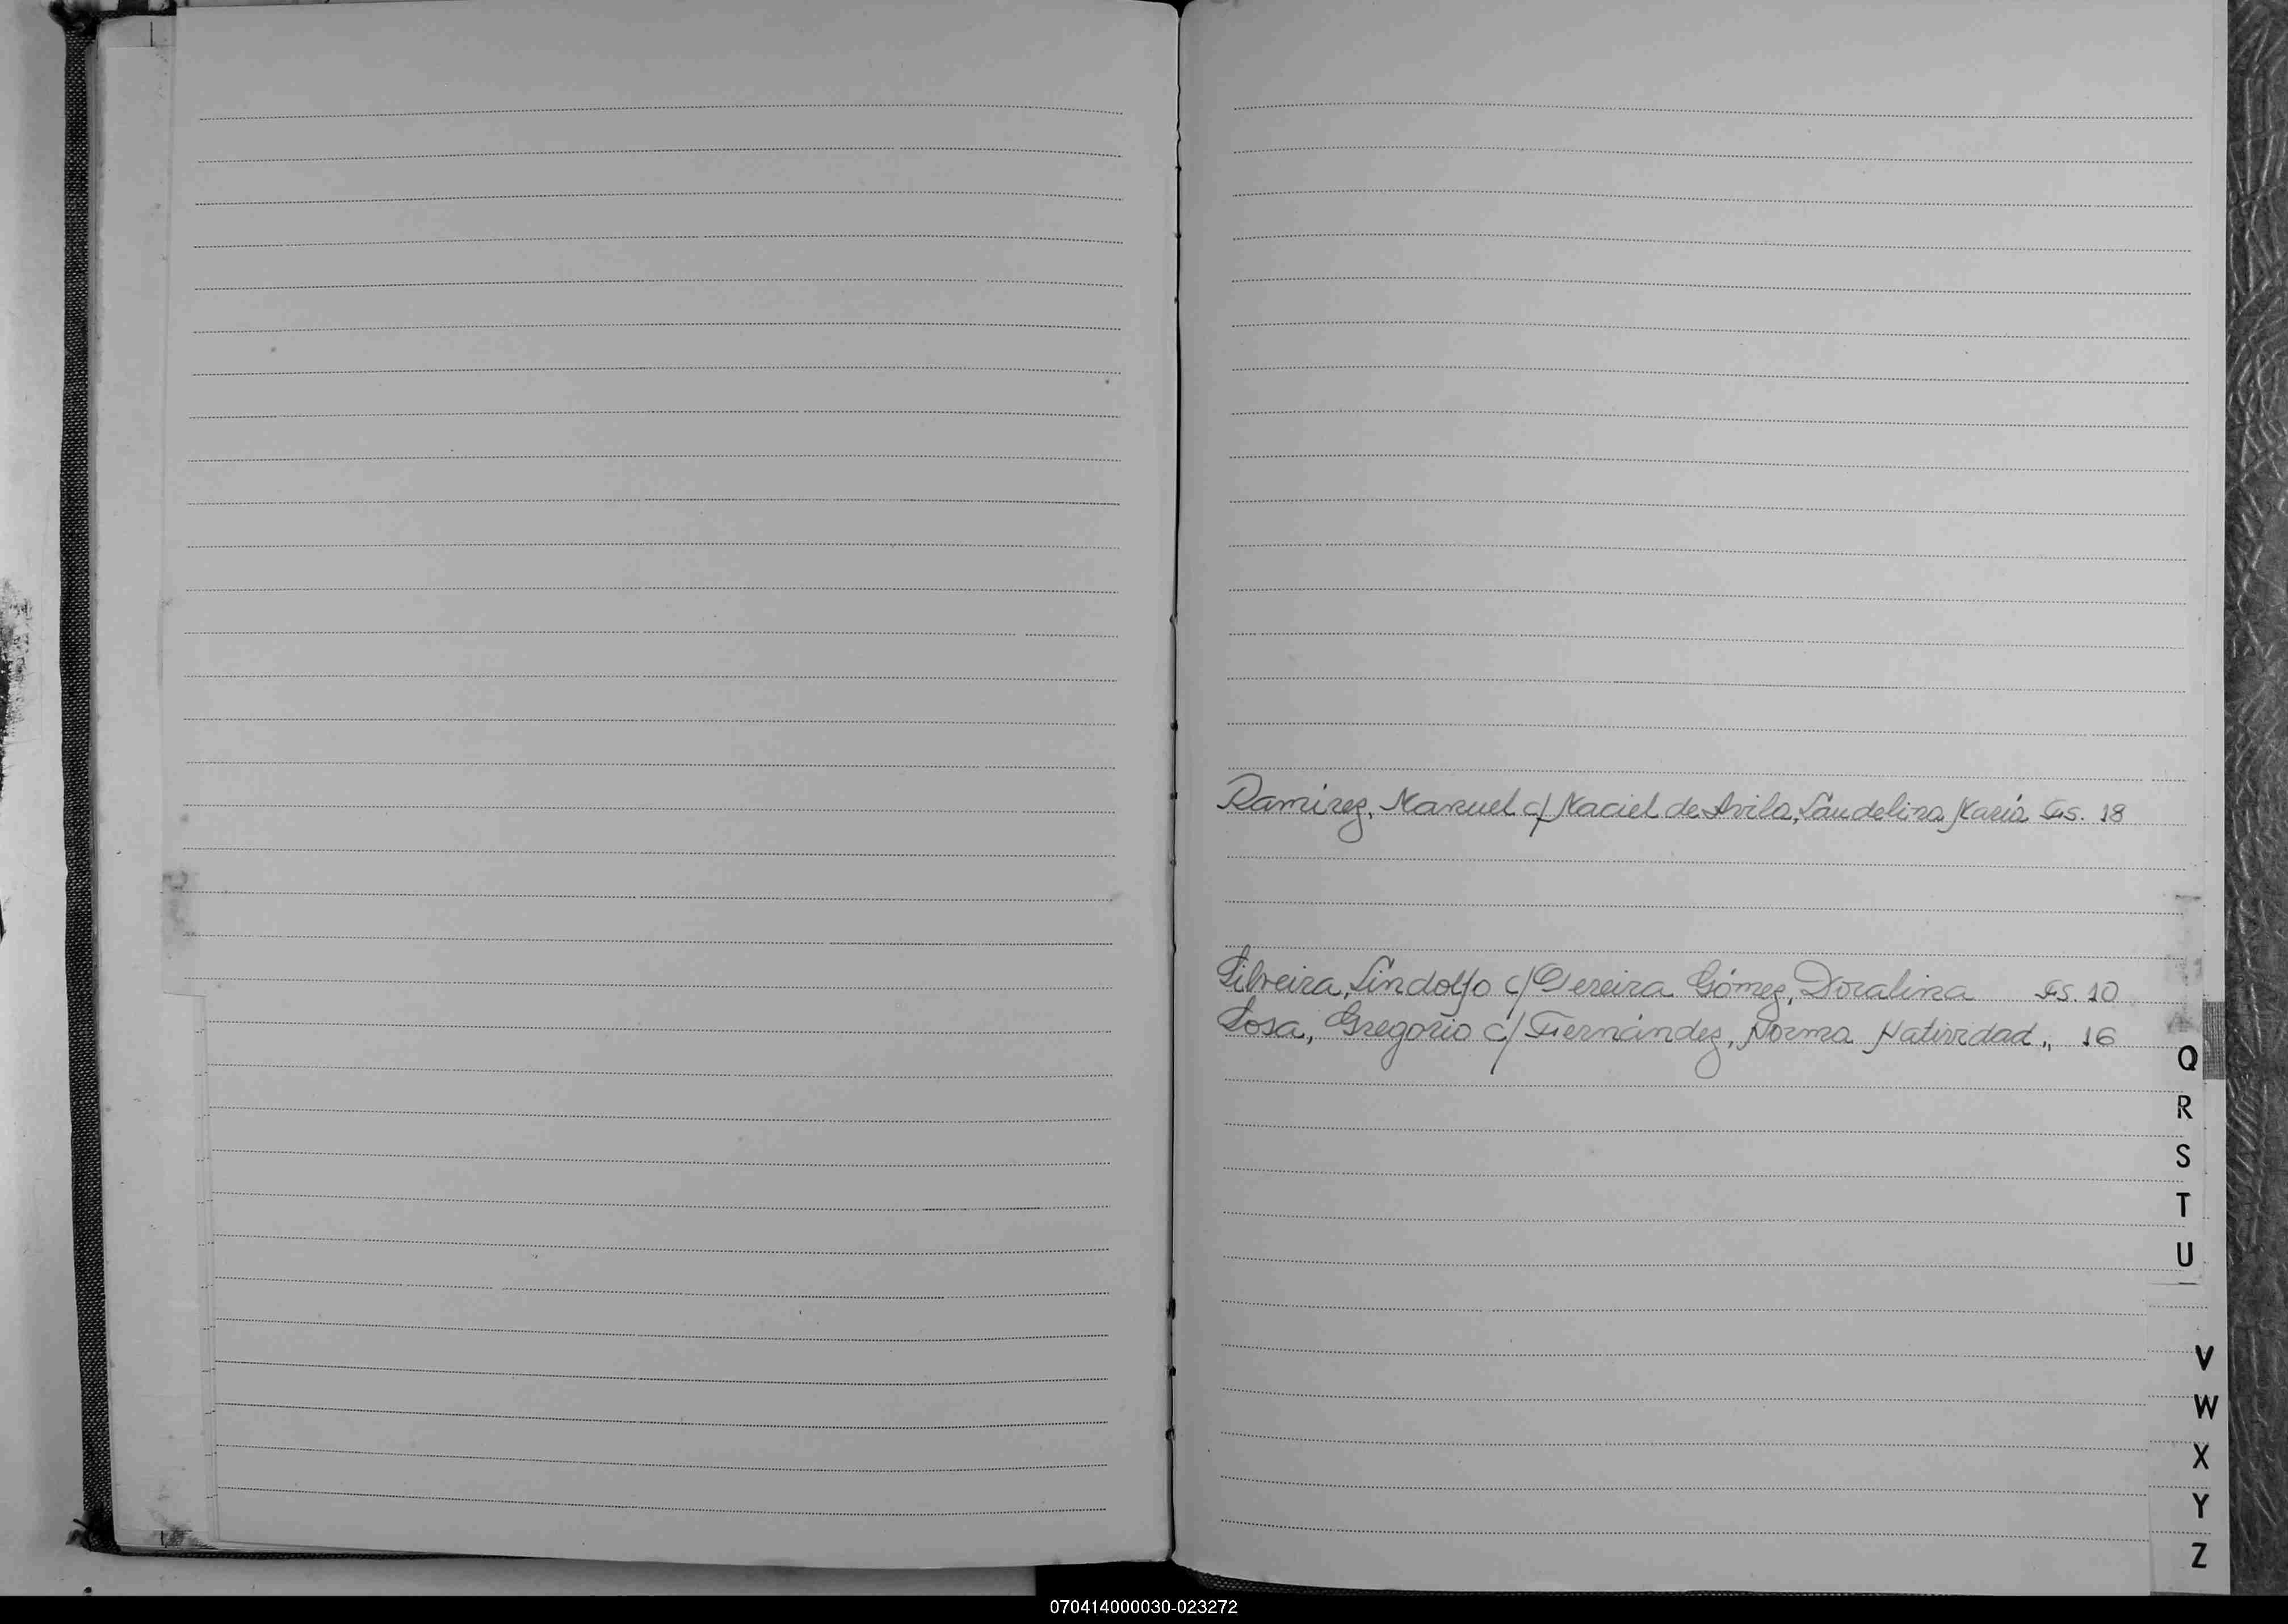 Ramírez, Manuel c/ Maciel de Avila, Laudelina María Fs. 18
Silveira, Lindolfo c/ Pereira Gómez, Doralina Fs. 10
Sosa, Gregorio c/ Fernández, Norma Natividad „ 16
Q
R
S
T
U
V
W
X
Y
Z
070414000030-023272